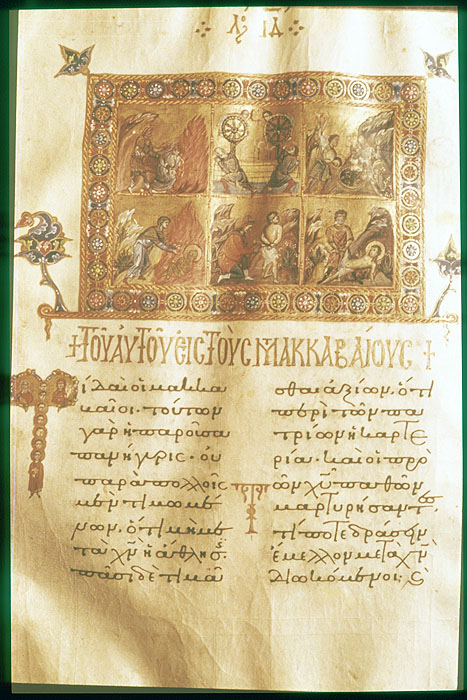 Λό ΙΔ
+ ΤΟΥ ΑΥΤΟΥ ΕΙΣ ΤΟὺΣ ΜΑΚΚΑΒΑΙΟΥΣ +
Τί δαὶ οἱ μακκα
βαῖοι· τούτων
γὰρ ἡ παροῦσα
πανήγυρις· οὐ
παρὰ πολλοῖς
μὲν τιμωμέ
νων· ὅτι μὴ με
τὰ χν ἡ ἄθλησ
πᾶσι δὲ τιμᾶ
σθαι ἀξίων· ὅτι
περὶ τῶν πα
τρίων ἡ καρτε
ρία· καὶ οἱ πρὸ
Τῶν χυ παθῶν
μαρτυρήσαντ
τί ποτε δράσειν
ἔμελλον μετὰ χν
διωκόμενοι;